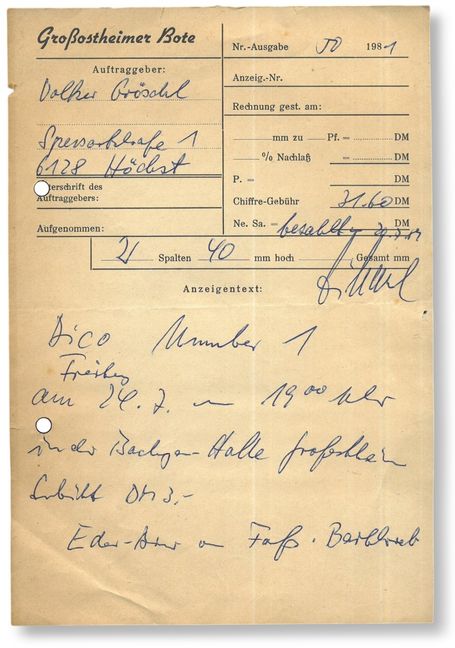 Großostheimer Bote
Auftraggeber:
Volker Gröschl
Spessartstraße 1
6128 Höchst
Unterschrift des
Auftraggebers:
Aufgenommen:
Nr.-Ausgabe 30 1981
Anzeig.-Nr.
Rechnung gest. am:
mm zu Pf. = DM
% Nachlaß = DM
P. = DM
Chiffre-Gebühr 31.60 DM
Ne. Sa. = bezahlt DM
2 Spalten 40 mm hoch Gesamt mm
Anzeigentext:
Disco Nummer 1
Freitag
am 24.7. um 19 00 Uhr
in der Bachgau-Halle Großostheim
Eintritt DM 3,-
Eder-Bier vom Faß. Barbetrieb